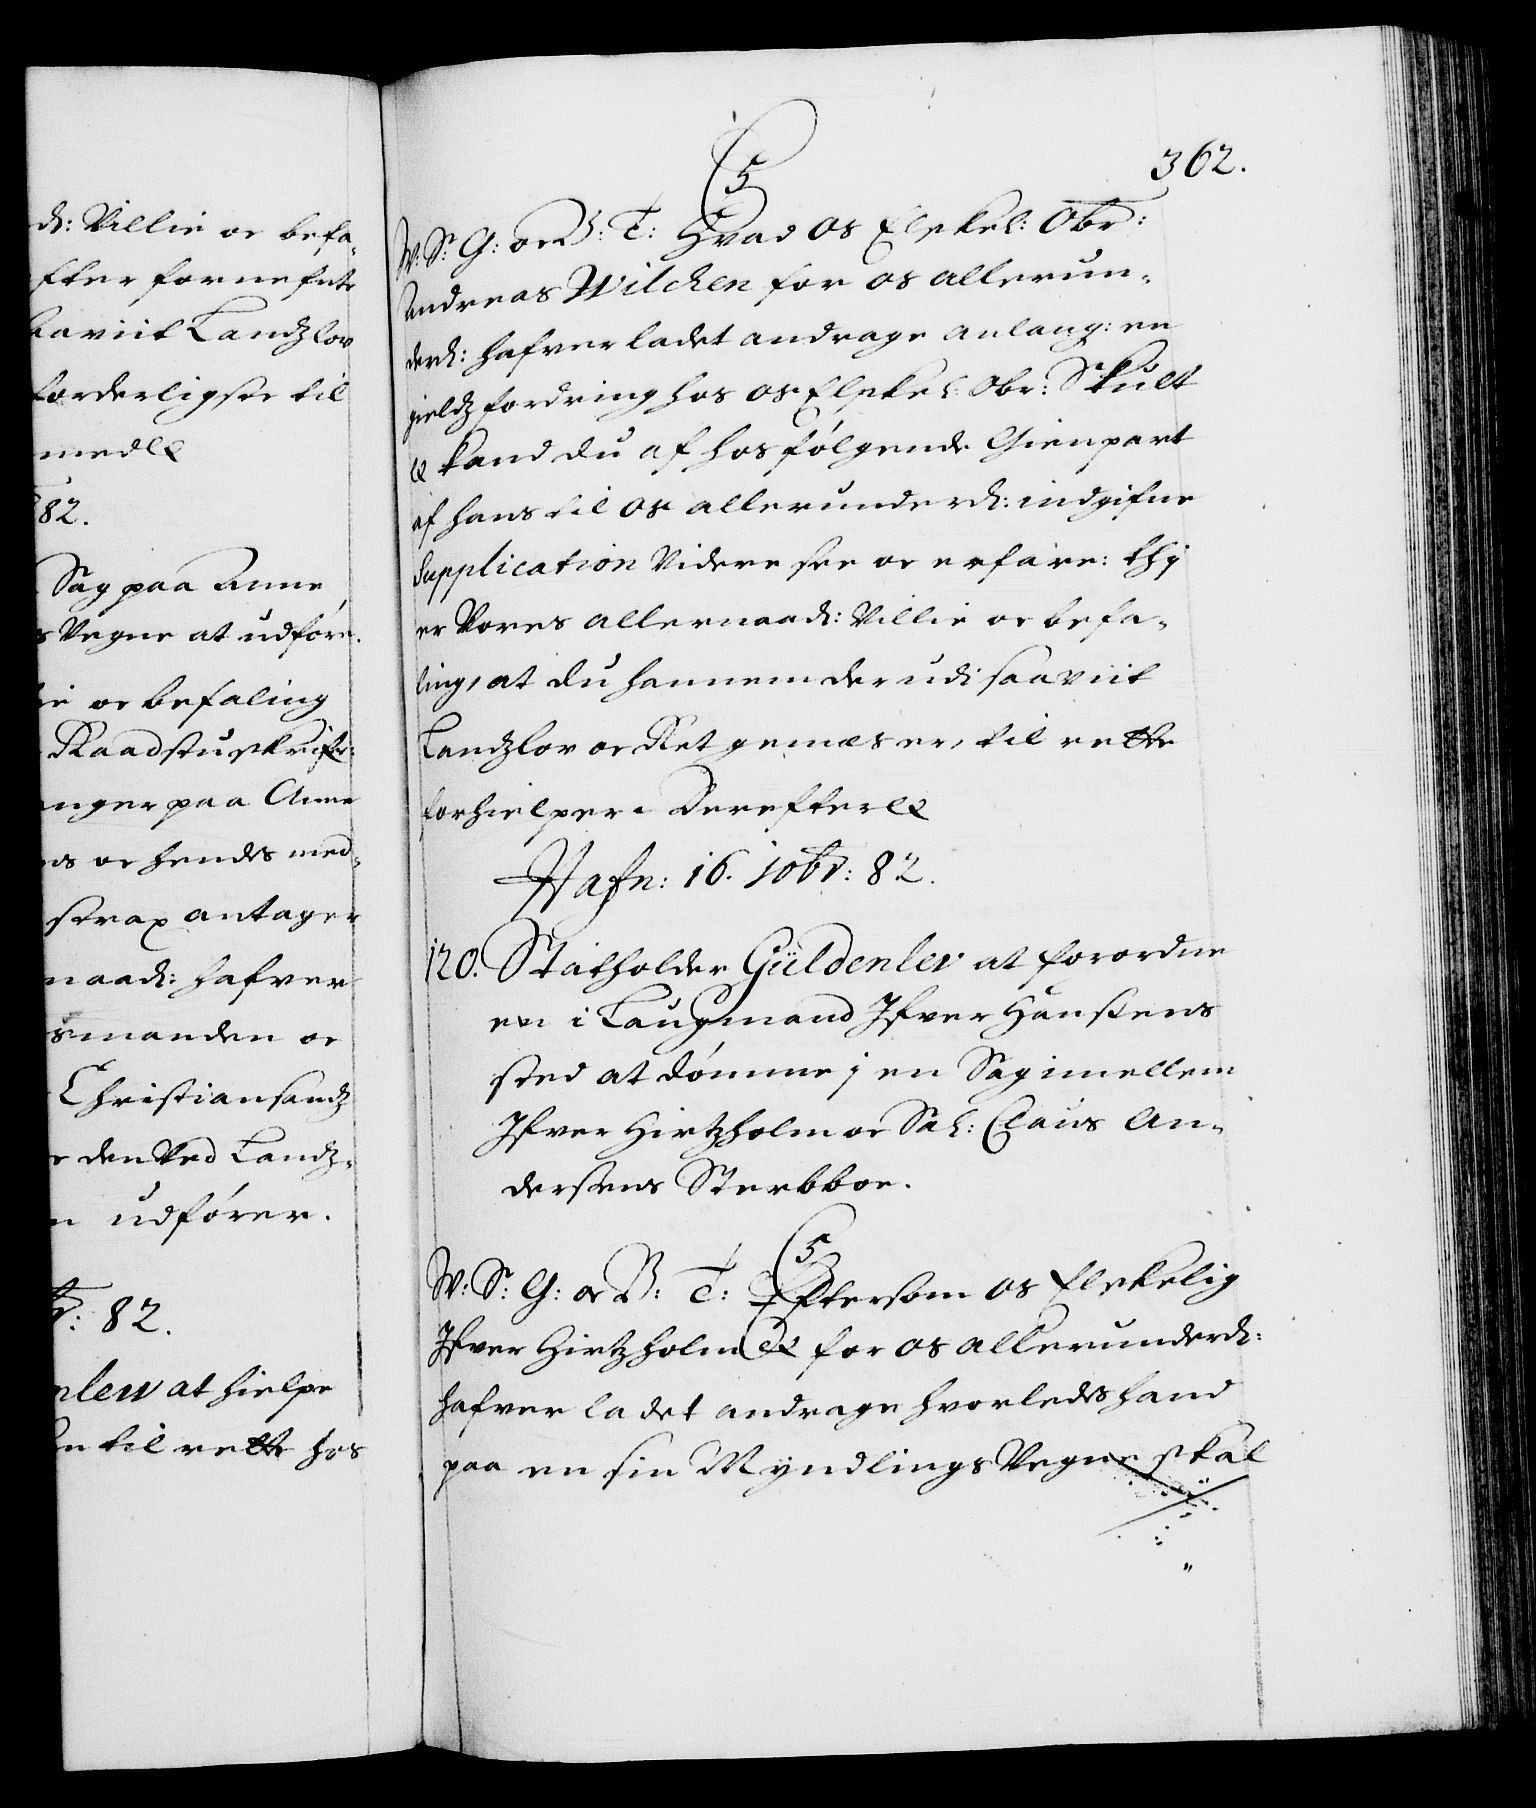 d: Villie oc befa-
fter fornefnte
saaviit Landzlov
forderligste til
medlꝛ
82.
Sag paa Anne
s Vegne at udføre.
ie oc befaling
Raadstuskrifr:
anger paa Anne
ns oc hendes med-
strax antager
naad: hafver
smanden oc
Christiansandz
e den Ved Landz-
n udfører.
br: 82.
nlew at hielpe
en til rette hos
362.
C5
W: S: G: oc B: T: Hvad os Elskel: Obr:
Andreas Wilchen for os allerun-
derd: hafver ladet andrage anlang: en
gieldz fordring hos os Elskel: Obr: Skult
ꝛc kand du af hosfølgende Gienpart
af hans til os allerunderd: indgifne
Supplication Videre see oc erfare: thj
er Vores allernaad: Villie oc befa-
ling, at du hannem derudi saaviit
Landzlov oc Ret gemæs er, til rette
forhielper. Derefter ꝛc
Hafn: 16. 10br: 82.
120. Statholder Güldenlev at forordne
en i Laugmand Ifver Hansens
sted at dømme j en Sag imellem
Ifver Hirtzholm oc Sal: Claus An-
dersens Sterbboe.
C5
W: S: G: oc B: T: Eftersom os Elskelig
Ifver Hirtzholm ꝛc for os allerunderd:
hafver ladet andrage hvorledes hand
paa en sin Myndlings Vegne skal